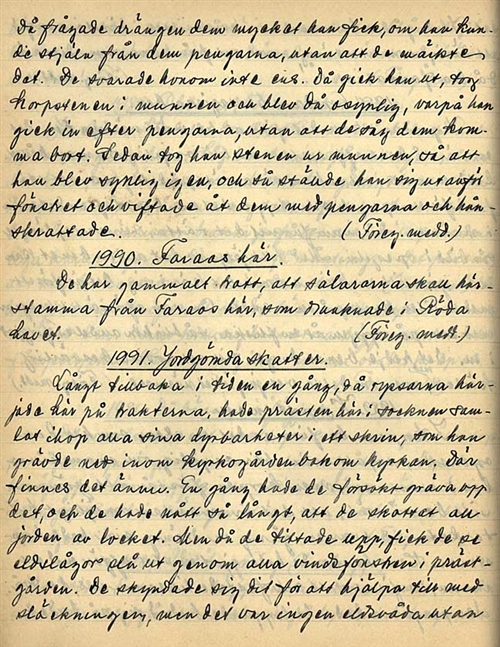 Då frågade drängen dem mycket han fick, om han kun-
de stjäla från dem pengarna, utan att de märkte
det. De svarade honom inte ens. Då gick han ut, tog
korpstenen i munnen och blev då osynlig, varpå han
gick in efter pengarna, utan att de såg dem kom-
ma bort. Sedan tog han stenen ur munnen, så att
han blev synlig igen, och så ställde han sig utanför
fönstret och viftade åt dem med pengarna och hån-
skrattade. (Föreg. medd.)
1990. Faraos här.
De har gammalt trott, att sälararna skall här-
stamma från Faraos här, som drunknade i Röda
havet. (Föreg. medd.)
1991. Jordgömda skatter.
Långt tillbaka i tiden en gång, då ryssarna här-
jade här på trakterna, hade prästen här i socknen sam-
lat ihop alla sina dyrbarheter i ett skrin, som han
grävde ned inom kyrkogården bakom kyrkan. Där
finnes det ännu. En gång hade de försökt gräva upp
det, och de hade nått så långt, att de skottat all
jorden av locket. Men då de tittade upp, fick de se
eldslågor slå ut genom alla vindsfönstren i präst-
gården. De skyndade sig dit för att hjälpa till med
släckningen, men det var ingen eldsvåda utan